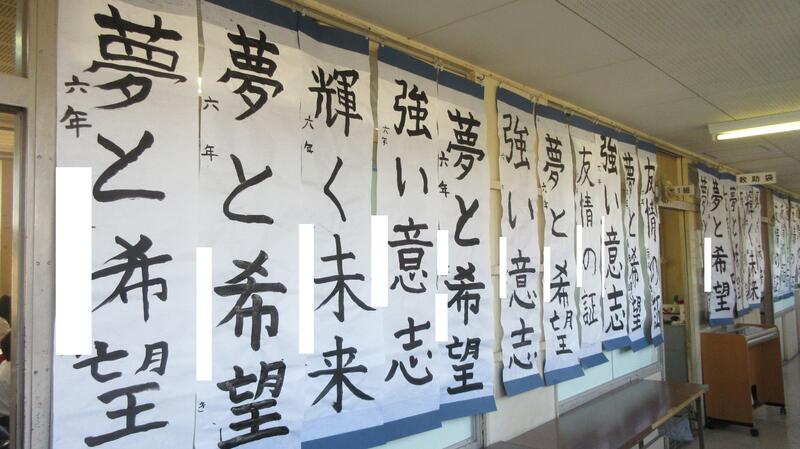 夢と希望
六年
夢と希望
六年
き
輝く未来
六年
強い意志
六年
夢と希望
六年
強い意志
六年
夢と希望
六年
友情の証
強い意志
夢と希望
友情の証
夢と希望
輝く未来
救助袋